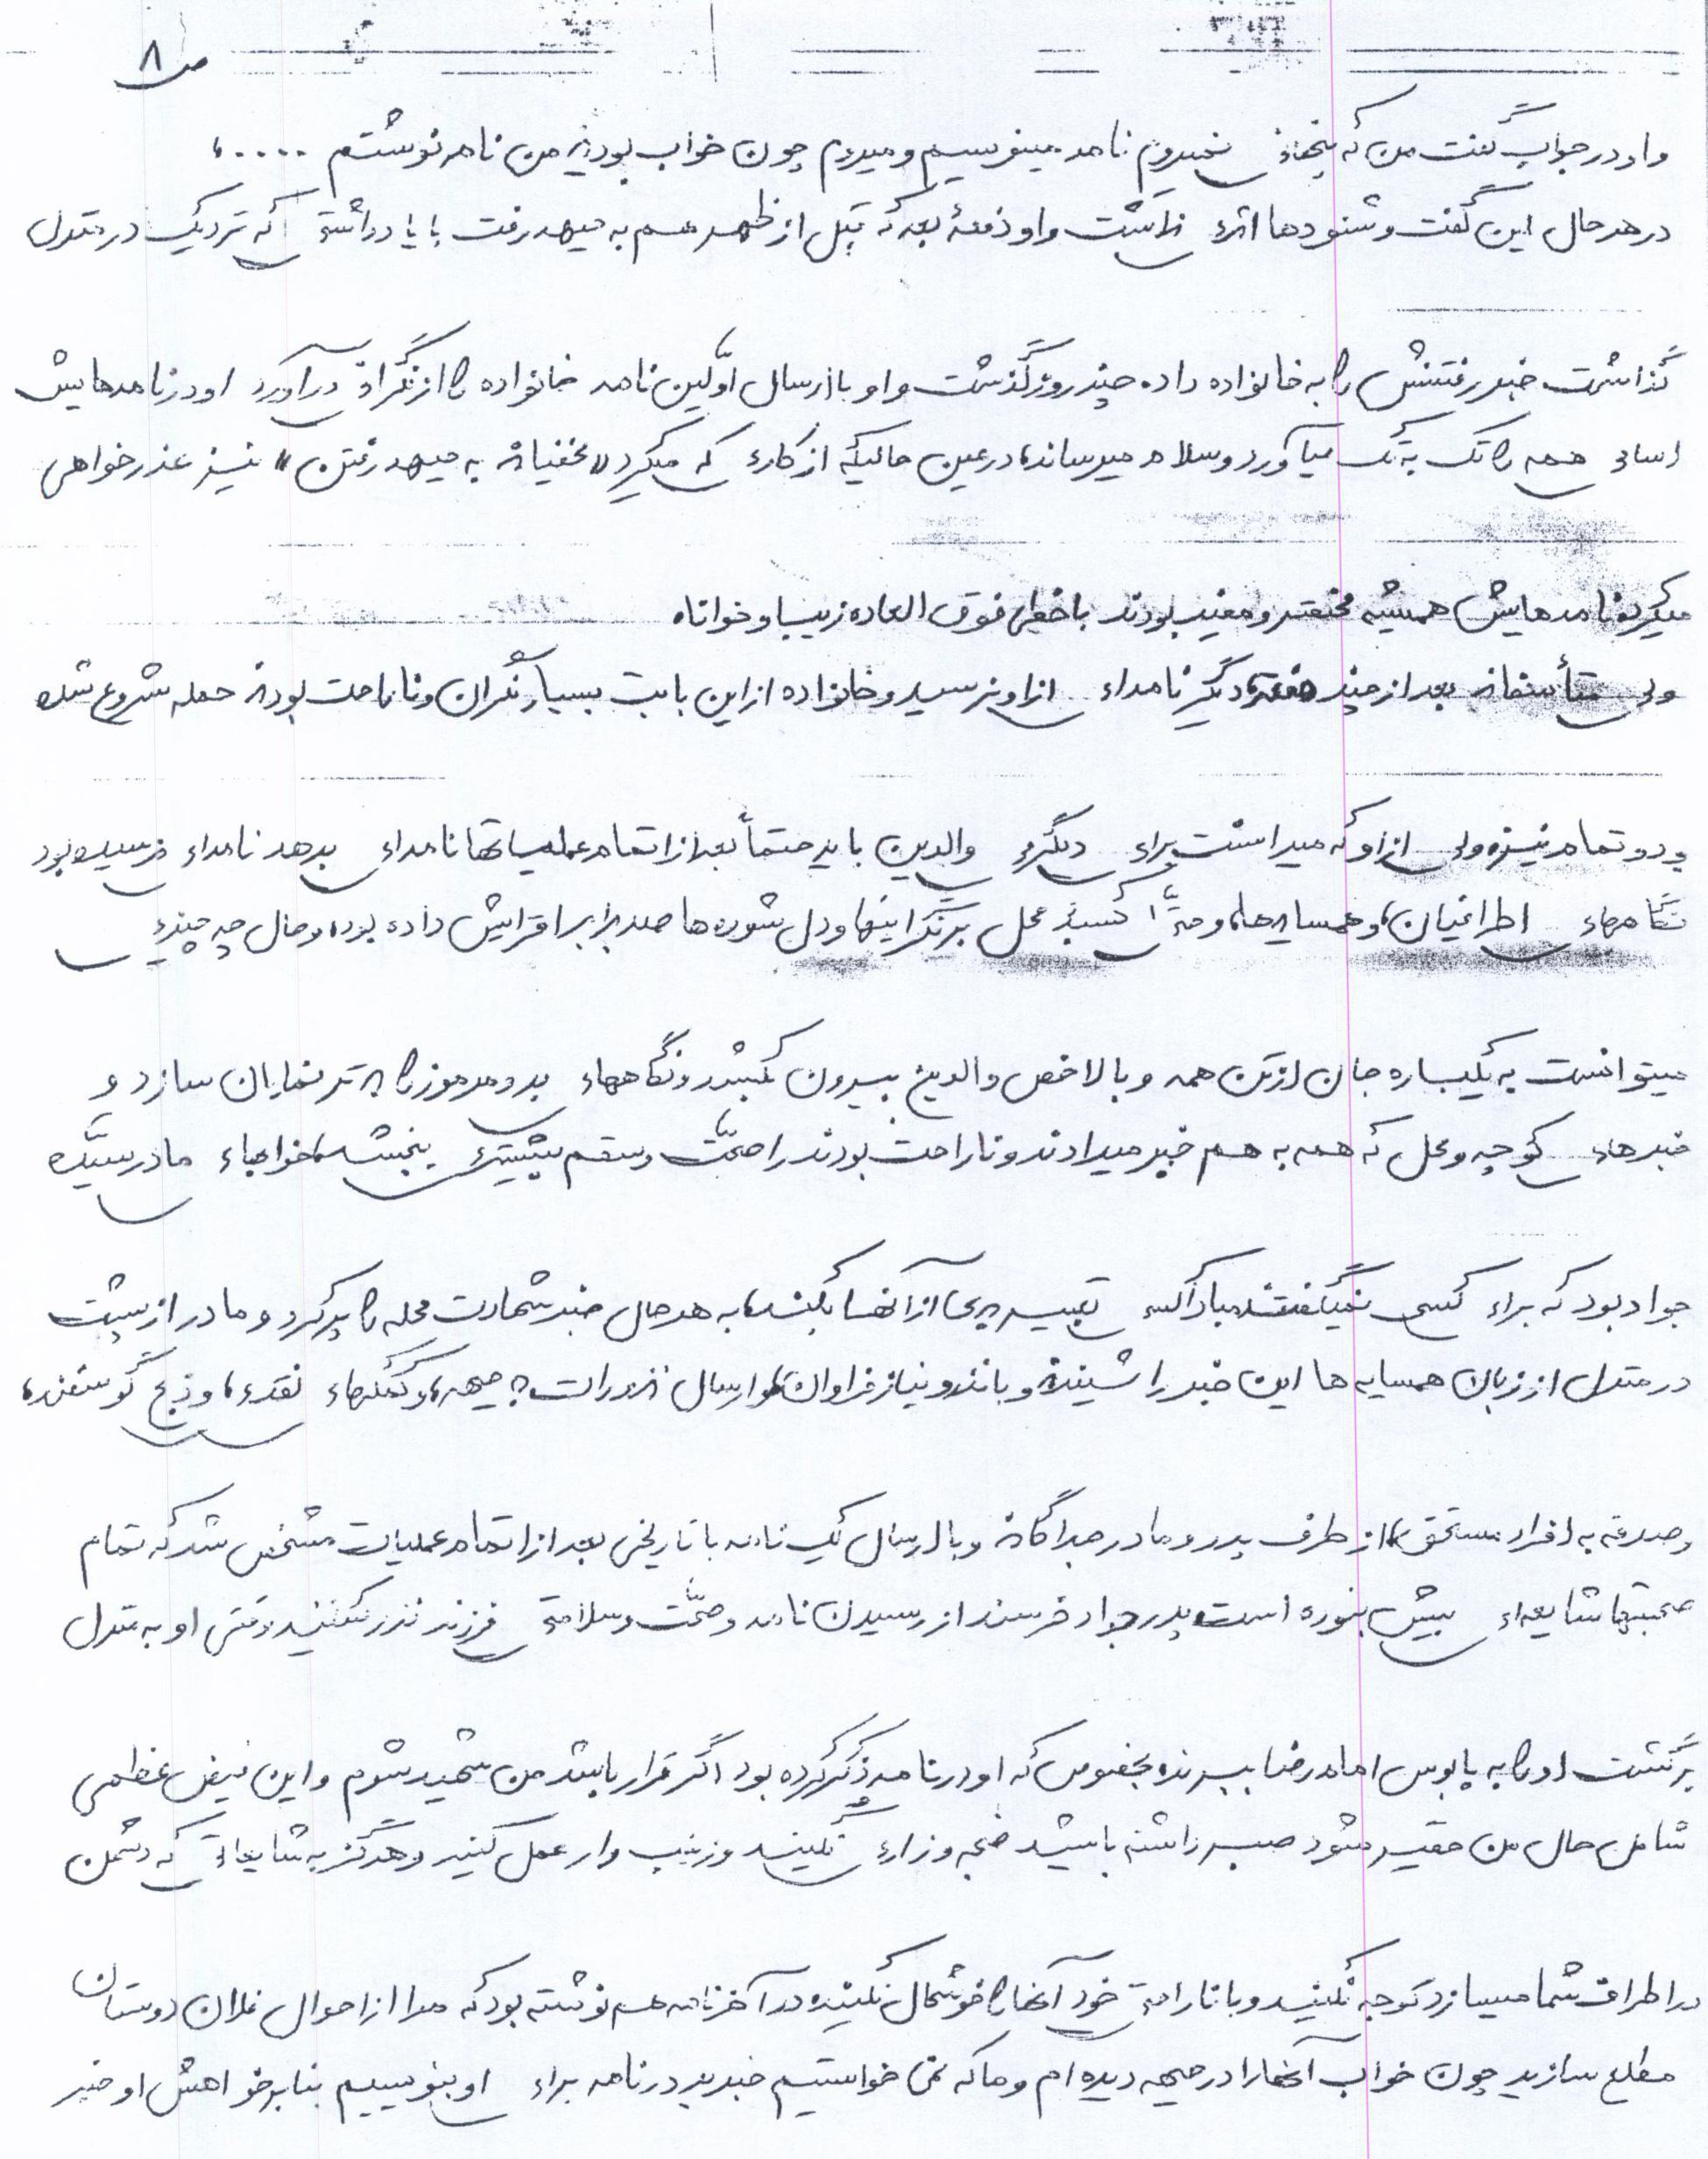 ص ۸
و او در جواب گفت من که پنهانی نمیروم نامه مینویسم و میروم چون خواب بودید من نامه نوشتم .....،
در هر حال این گفت و شنودها اثری نداشت و او دفعهٔ بعد که قبل از ظهر هم به جبهه رفت با یادداشتی که نزدیک در منزل
گذاشت خبر رفتنش را به خانواده داد. چند روز گذشت و او با ارسال اوّلین نامه خانواده را از نگرانی درآورد او در نامه‌هایش
اسامی همه را تک به تک می‌آورد و سلام میرساند، در عین حالیکه از کاری که میکرد «مخفیانه به جبهه رفتن» نیز عذرخواهی
میکرد نامه‌هایش همیشه مختصر و مفید بودند با خطی فوق العاده زیبا و خوانا.
ولی متأسفانه بعد از چند هفته دیگر نامه‌ای از او نرسید و خانواده از این بابت بسیار نگران و ناراحت بودند حمله شروع شده
و رو تمام نیز، ولی از او که میدانست برای دلگرمی والدین باید حتماً بعد از اتمام عملیاتها نامه‌ای بدهد نامه‌ای نرسیده بود
نگاههای اطرافیان، و همسایه‌ها، و حتّی کسبهٔ محل بر نگرانیها و دل شوره‌ها صد برابر افزایش داده بود، و حال چه چیزی
میتوانست به یکباره جان از تن همه و بالاخص والدین بیرون بکشد و نگاههای بد و مرموز را بدتر نمایان سازد و
خبرهای کوچه و محل که همه به هم خبر میدادند و ناراحت بودند را صحّت و سقم بیشتری ببخشد، خوابهای مادر سیّد
جواد بود که برای کسی نمیگفتند مبادا کسی تعبیر بدی از آنها بکند، به هر حال خبر شهادت محله را پر کرد و مادر از پشت
در منزل از زبان همسایه‌ها این خبر را شنید، و با نذر و نیاز فراوان، و ارسال نذورات به جبهه، و کمکهای نقدی، و ذبح گوسفند،
و صدقه به افراد مستحق، از طرف پدر و مادر جداگانه و با ارسال یک نامه با تاریخی بعد از اتمام عملیات مشخص شد که تمام
صحبتها شایعه‌ای بیش نبوده است پدر جواد خرسند از رسیدن نامه و صحّت و سلامتی فرزند نذر میکنند وقتی او به منزل
برگشت او را به پابوس امام رضا ببرند بخصوص که او در نامه ذکر کرده بود اگر قرار باشد من شهید شوم و این فیض عظمی
شامل حال من حقیر شود صبر داشته باشید ضجه و زاری نکنید و زینب وار عمل کنید و هرگز به شایعاتی که دشمن
در اطراف شما میسازد توجه نکنید و با ناراحتی خود آنها را خوشحال نکنید در آخر نامه هم نوشته بود که مرا از احوال فلان دوستان
مطلع سازید چون خواب آنها را در جبهه دیده ام و ما که نمی خواستیم خبر بد در نامه برای او بنویسیم بنابر خواهش او خبر